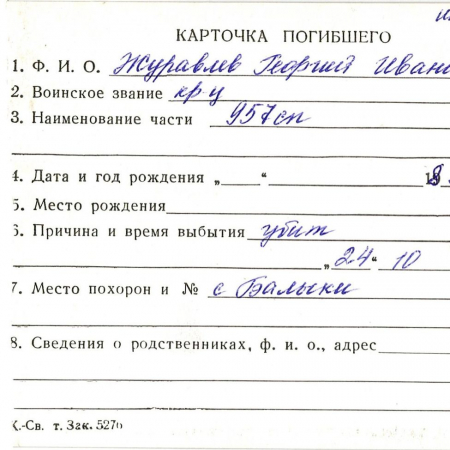 КАРТОЧКА ПОГИБШЕГО
1. Ф. И. О. Журавлев Георгий Ивано
2. Воинское звание кр-ц
3. Наименование части 957 сп
4. Дата и год рождения „ “ 18
5. Место рождения
6. Причина и время выбытия убит
„24“ 10
7. Место похорон и № с Балыки
8. Сведения о родственниках, ф. и. о., адрес
К.-Св. т. Зак. 527